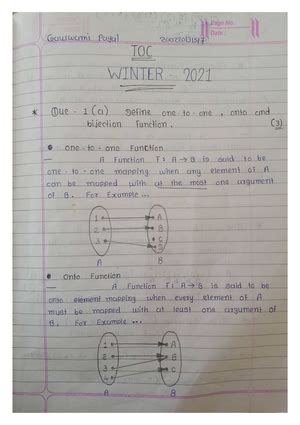 Page No.
Date :
Gauswami Payal
TOC
WINTER - 2021
* Que - 1 (a) Define one-to-one, onto and
bijection Function. (3)
one-to-one Function
A Function F: A → B is said to be
one-to-one mapping when any element of A
can be mapped with at the most one argument
of B. For Example ...
1 A
2 B
3 C
D
A B
Onto Function
A Function F: A → B is said to be
onto element mapping when every element of A
must be mapped with at least one argument of
B. For Example ...
1 A
2 B
3 C
4
A B